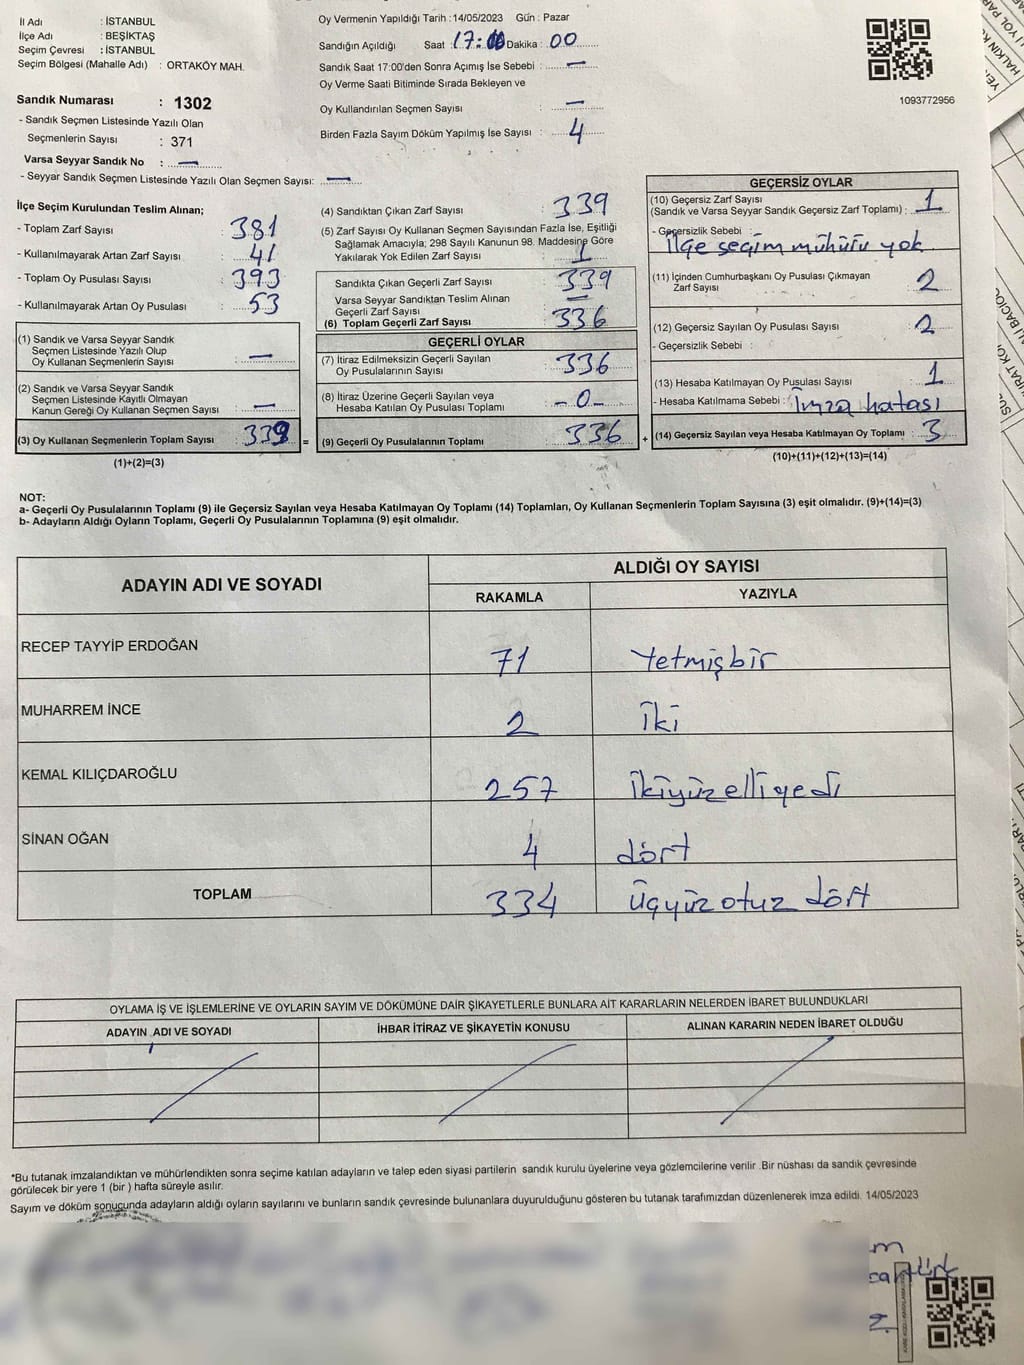 İl Adı : İSTANBUL
İlçe Adı : BEŞİKTAŞ
Seçim Çevresi : İSTANBUL
Seçim Bölgesi (Mahalle Adı) : ORTAKÖY MAH.
Sandık Numarası : 1302
- Sandık Seçmen Listesinde Yazılı Olan
Seçmenlerin Sayısı : 371
Varsa Seyyar Sandık No : —
- Seyyar Sandık Seçmen Listesinde Yazılı Olan Seçmen Sayısı: —
Oy Vermenin Yapıldığı Tarih : 14/05/2023 Gün : Pazar
Sandığın Açıldığı Saat : 17:00 Dakika : 00
Sandık Saat 17:00'den Sonra Açımış İse Sebebi : —
Oy Verme Saati Bitiminde Sırada Bekleyen ve
Oy Kullandırılan Seçmen Sayısı : —
Birden Fazla Sayım Döküm Yapılmış İse Sayısı : 4
1093772956
İlçe Seçim Kurulundan Teslim Alınan;
- Toplam Zarf Sayısı : 381
- Kullanılmayarak Artan Zarf Sayısı : 41
- Toplam Oy Pusulası Sayısı : 393
- Kullanılmayarak Artan Oy Pusulası : 53
(1) Sandık ve Varsa Seyyar Sandık
Seçmen Listesinde Yazılı Olup
Oy Kullanan Seçmenlerin Sayısı : —
(2) Sandık ve Varsa Seyyar Sandık
Seçmen Listesinde Kayıtlı Olmayan
Kanun Gereği Oy Kullanan Seçmen Sayısı : —
(3) Oy Kullanan Seçmenlerin Toplam Sayısı : 339 =
(1)+(2)=(3)
(4) Sandıktan Çıkan Zarf Sayısı : 339
(5) Zarf Sayısı Oy Kullanan Seçmen Sayısından Fazla İse, Eşitliği
Sağlamak Amacıyla; 298 Sayılı Kanunun 98. Maddesine Göre
Yakılarak Yok Edilen Zarf Sayısı : 1
Sandıkta Çıkan Geçerli Zarf Sayısı : 339
Varsa Seyyar Sandıktan Teslim Alınan
Geçerli Zarf Sayısı : —
(6) Toplam Geçerli Zarf Sayısı : 336
GEÇERLİ OYLAR
(7) İtiraz Edilmeksizin Geçerli Sayılan
Oy Pusulalarının Sayısı : 336
(8) İtiraz Üzerine Geçerli Sayılan veya
Hesaba Katılan Oy Pusulası Toplamı : -0-
(9) Geçerli Oy Pusulalarının Toplamı : 336 +
GEÇERSİZ OYLAR
(10) Geçersiz Zarf Sayısı
(Sandık ve Varsa Seyyar Sandık Geçersiz Zarf Toplamı) : 1
- Geçersizlik Sebebi :
İlçe seçim mühürü yok
(11) İçinden Cumhurbaşkanı Oy Pusulası Çıkmayan
Zarf Sayısı : 2
(12) Geçersiz Sayılan Oy Pusulası Sayısı : 2
- Geçersizlik Sebebi :
(13) Hesaba Katılmayan Oy Pusulası Sayısı : 1
- Hesaba Katılmama Sebebi : İmza hatası
(14) Geçersiz Sayılan veya Hesaba Katılmayan Oy Toplamı : 3
(10)+(11)+(12)+(13)=(14)
NOT:
a- Geçerli Oy Pusulalarının Toplamı (9) ile Geçersiz Sayılan veya Hesaba Katılmayan Oy Toplamı (14) Toplamları, Oy Kullanan Seçmenlerin Toplam Sayısına (3) eşit olmalıdır. (9)+(14)=(3)
b- Adayların Aldığı Oyların Toplamı, Geçerli Oy Pusulalarının Toplamına (9) eşit olmalıdır.
ADAYIN ADI VE SOYADI
ALDIĞI OY SAYISI
RAKAMLA YAZIYLA
RECEP TAYYİP ERDOĞAN 71 Yetmişbir
MUHARREM İNCE 2 İki
KEMAL KILIÇDAROĞLU 257 İkiyüzelliyedi
SİNAN OĞAN 4 dört
TOPLAM 334 Üçyüzotuz dört
OYLAMA İŞ VE İŞLEMLERİNE VE OYLARIN SAYIM VE DÖKÜMÜNE DAİR ŞİKAYETLERLE BUNLARA AİT KARARLARIN NELERDEN İBARET BULUNDUKLARI
ADAYIN ADI VE SOYADI İHBAR İTİRAZ VE ŞİKAYETİN KONUSU ALINAN KARARIN NEDEN İBARET OLDUĞU
*Bu tutanak imzalandıktan ve mühürlendikten sonra seçime katılan adayların ve talep eden siyasi partilerin sandık kurulu üyelerine veya gözlemcilerine verilir .Bir nüshası da sandık çevresinde
görülecek bir yere 1 (bir ) hafta süreyle asılır.
Sayım ve döküm sonucunda adayların aldığı oyların sayılarını ve bunların sandık çevresinde bulunanlara duyurulduğunu gösteren bu tutanak tarafımızdan düzenlenerek imza edildi. 14/05/2023